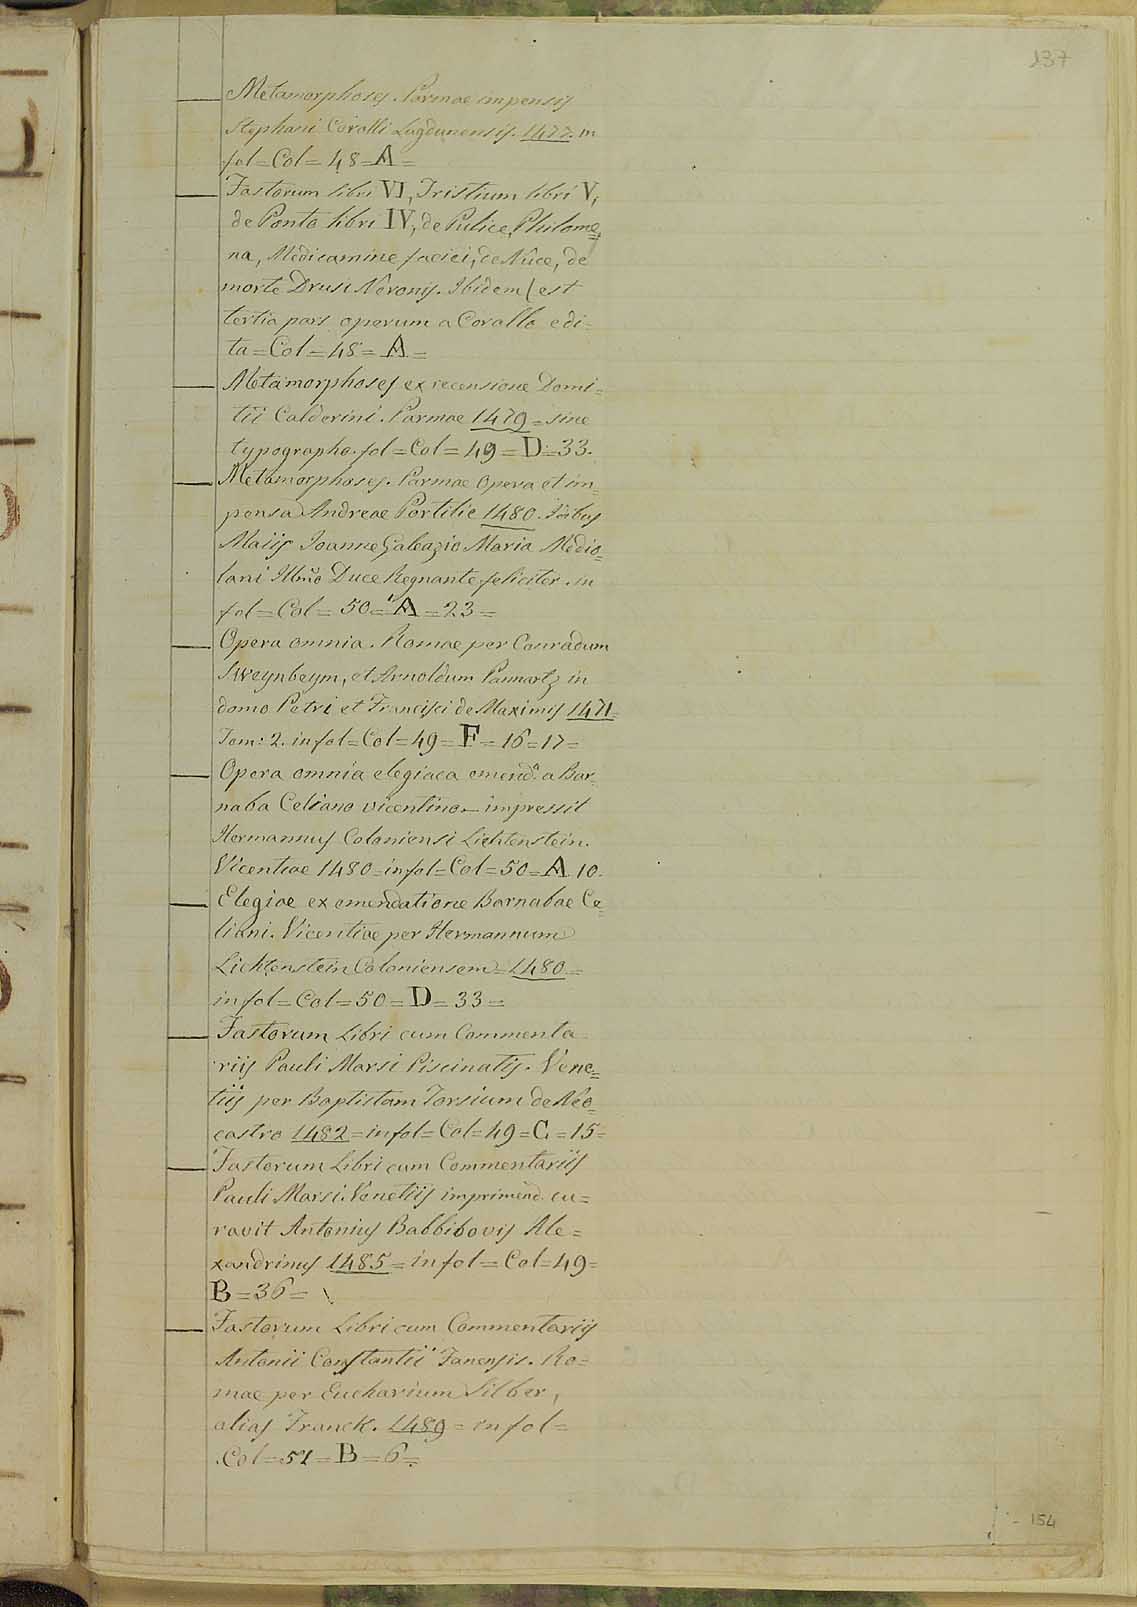 137
Metamorphoses. Parmae impensis
Stephani Coralli Lugdunensis. 1477. in
fol = Col = 48 = A =
Fastorum libri VI, Tristium libri V,
de Ponto libri IV, de Pulice, Philome=
na, Medicamine faciei, de Nuce, de
morte Drusi Neronis. Ibidem (est
tertia pars operum a Corallo edi=
ta = Col = 48 = A =
Metamorphoses ex recensione Domi=
tii Calderini. Parmae 1479 = sine
typographo. fol = Col = 49 = D = 33.
Metamorphoses. Parmae opera et im=
pensa Andreae Portilie 1480. Idibus
Maiis Joanne Galeazio Maria Medio=
lani Duce Regnante feliciter. in
fol = Col = 50 = A = 23 =
Opera omnia. Romae per Conradum
Sweynheym, et Arnoldum Pannartz in
domo Petri et Francisci de Maximis 1471=
Tom: 2. in fol = Col = 49 = F = 16 = 17 =
Opera omnia elegiaca emend.a a Bar=
naba Celsano vicentino = impressit
Hermannus Coloniensi Lichtenstein.
Vicentiae 1480 = in fol = Col = 50 = A 10.
Elegiae ex emendatione Barnabae Ce=
liani. Vicentiae per Hermannum
Lichtenstein Coloniensem = 1480 =
in fol = Col = 50 = D = 33 =
Fastorum Libri cum Commenta=
riis Pauli Marsi Piscinatis. Vene=
tiis per Baptistam Torsium de Neo=
castro 1482 = in fol = Col = 49 = C = 15 =
Fastorum Libri cum Commentariis
Pauli Marsi. Venetiis imprimend. cu=
ravit Antonius Babbibovis Ale=
xandrinus 1485 = in fol = Col = 49 =
B = 36 =
Fastorum Libri cum Commentariis
Antonii Constantii Fanensis. Ro=
mae per Eucharium Silber,
alias Franck. 1489 = in fol =
Col = 51 = B = 6 =
154